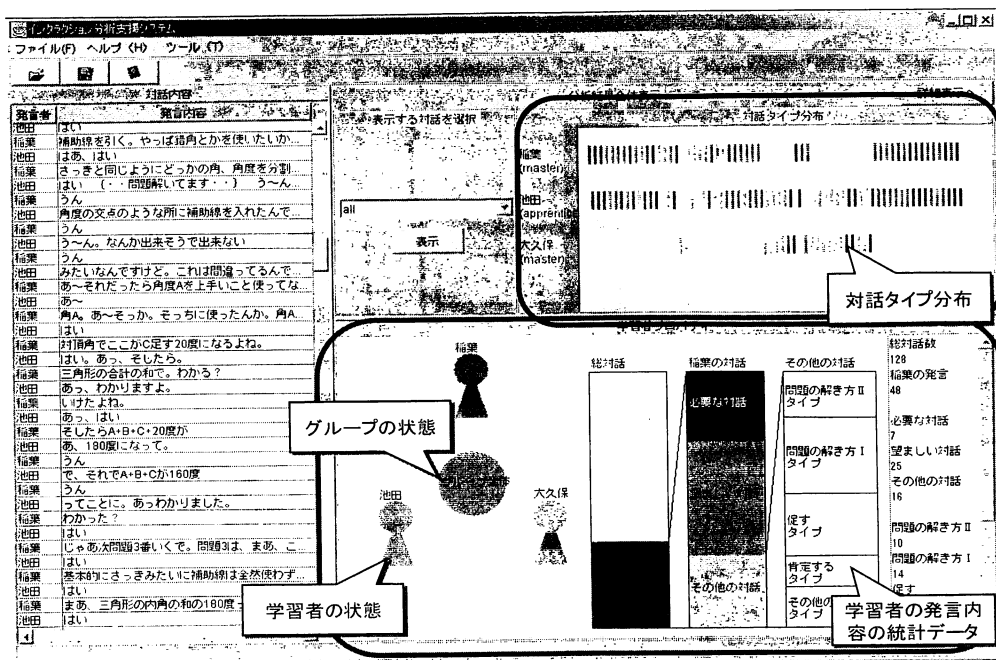 インタラクション分析支援システム
ファイル(F) ヘルプ (H) ツール (T)
対話内容
発言者 発言内容
池田 はい
稲葉 補助線を引く。やっぱ錯角とかを使いたいか...
池田 はあ、はい
稲葉 さっきと同じようにどっかの角、角度を分割...
池田 はい （・・問題解いてます・・） う～ん
稲葉 うん
池田 角度の交点のような所に補助線を入れたんで...
稲葉 うん
池田 う～ん。なんか出来そうで出来ない
稲葉 うん
池田 みたいなんですけど。これは間違ってるんで...
稲葉 あ～それだったら角度Aを上手いこと使ってな
池田 あ～
稲葉 角A。あ～そっか。そっちに使ったんか。角A...
池田 はい
稲葉 対頂角でここがC足す20度になるよね。
池田 はい。あっ、そしたら。
稲葉 三角形の合計の和で。わかる？
池田 あっ、わかりますよ。
稲葉 いけたよね。
池田 あっ、はい
稲葉 そしたらA+B+C+20度が
池田 あ、180度になって。
稲葉 うん
池田 で、それでA+B+Cが160度
稲葉 うん
池田 ってことに。あっわかりました。
稲葉 わかった？
池田 はい
稲葉 じゃあ次問題3番いくで。問題3は、まあ、こ
池田 はい
稲葉 基本的にさっきみたいに補助線は全然使わず...
池田 はい
稲葉 まあ、三角形の内角の和の180度
池田 はい
表示する対話を選択
all
表示
対話タイプ分布
稲葉
(master)
池田
(apprentice
大久保
(master)
対話タイプ分布
稲葉
グループの状態
池田
大久保
学習者の状態
総対話
稲葉の対話
その他の対話
必要な対話
その他の対話
問題の解き方Ⅱ
タイプ
問題の解き方Ⅰ
タイプ
促す
タイプ
肯定する
タイプ
その他の
タイプ
総対話数
128
稲葉の発言
48
必要な対話
7
望ましい対話
25
その他の対話
16
問題の解き方Ⅱ
10
問題の解き方Ⅰ
14
促す
学習者の発言内
容の統計データ